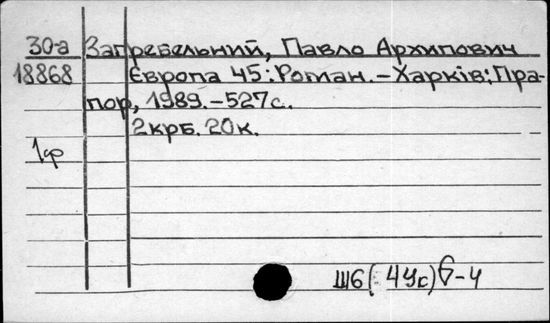 30-а Загребельний, Павло Архипович
18868 Європа 45: Роман.-Харків: Пра-
пор, 1989.-527с.
2крб. 20к.
1ф
Ш6(4Ук)6-4